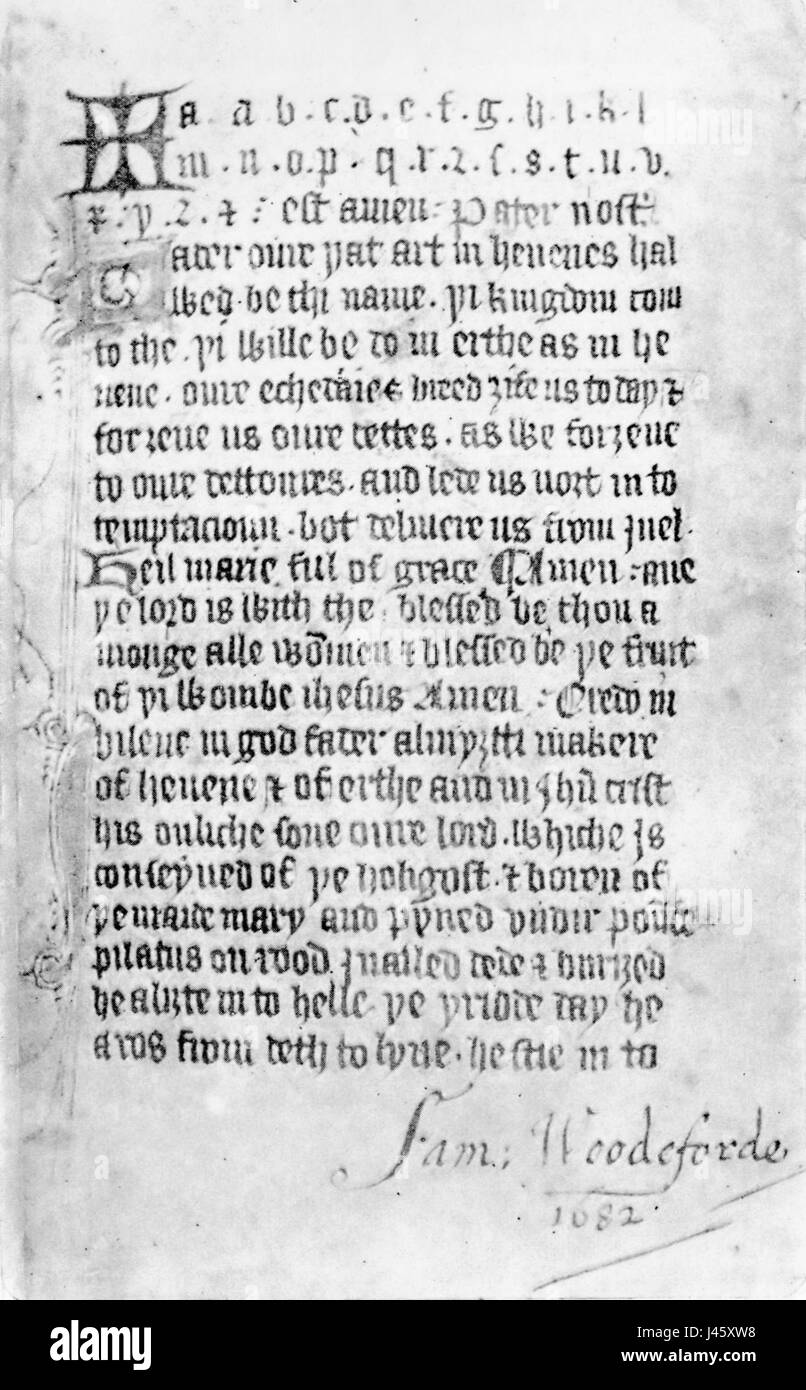 a a b . c . d . e . f . g . h . i . k . l
m . n . o . p . q . r . ꝛ . ſ . s . t . u . v .
x . y . z . ⁊ : est amen : Pater nost'
ater oure þat art in heuenes hal
wed be thi name . þi kingdom com
to the . þi wille be do in erthe as in he
uene . oure echedaies breed ȝife us to day ⁊
forȝeue us oure dettes . as we forȝeue
to oure dettoures . and lede us nort in to
temptacioun . bot deliuere us from yuel .
Heil marie ful of grace Amen : aue
þe lord is with the blessed be thou a
monge alle wōmen ⁊ blessed be þe fruit
of þi wombe ihesus Amen : Credo in
bileue in god fader almyȝtti makere
of heuene ⁊ of erthe and in jhū crist
his onliche sone oure lord . whiche is
conseyued of þe holigost . ⁊ boren of
þe maide mary and pyned vndir
pilatus on rood jnailed dede ⁊ buried
he aliȝte in to helle þe þridde day he
aros from deth to lyue . he stie in to
Sam: Woodeforde
1682
alamy
alamy
a
alamy
Image ID: J45XW8
www.alamy.com